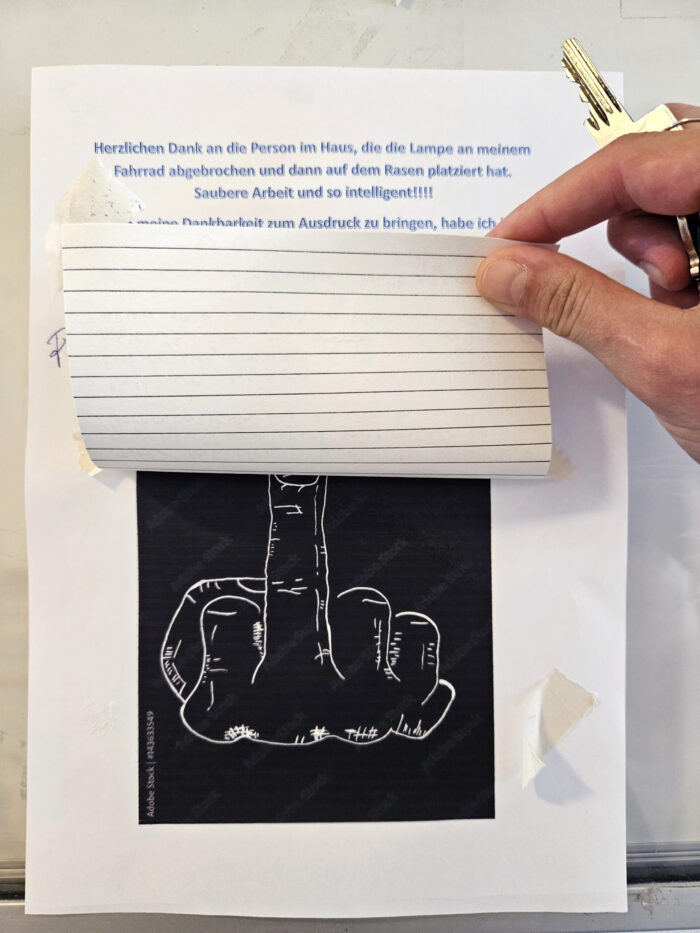 Herzlichen Dank an die Person im Haus, die die Lampe an meinem
Fahrrad abgebrochen und dann auf dem Rasen platziert hat.
Saubere Arbeit und so intelligent!!!!
meine Dankbarkeit zum Ausdruck zu bringen, habe ich
Adobe Stock | #143633549